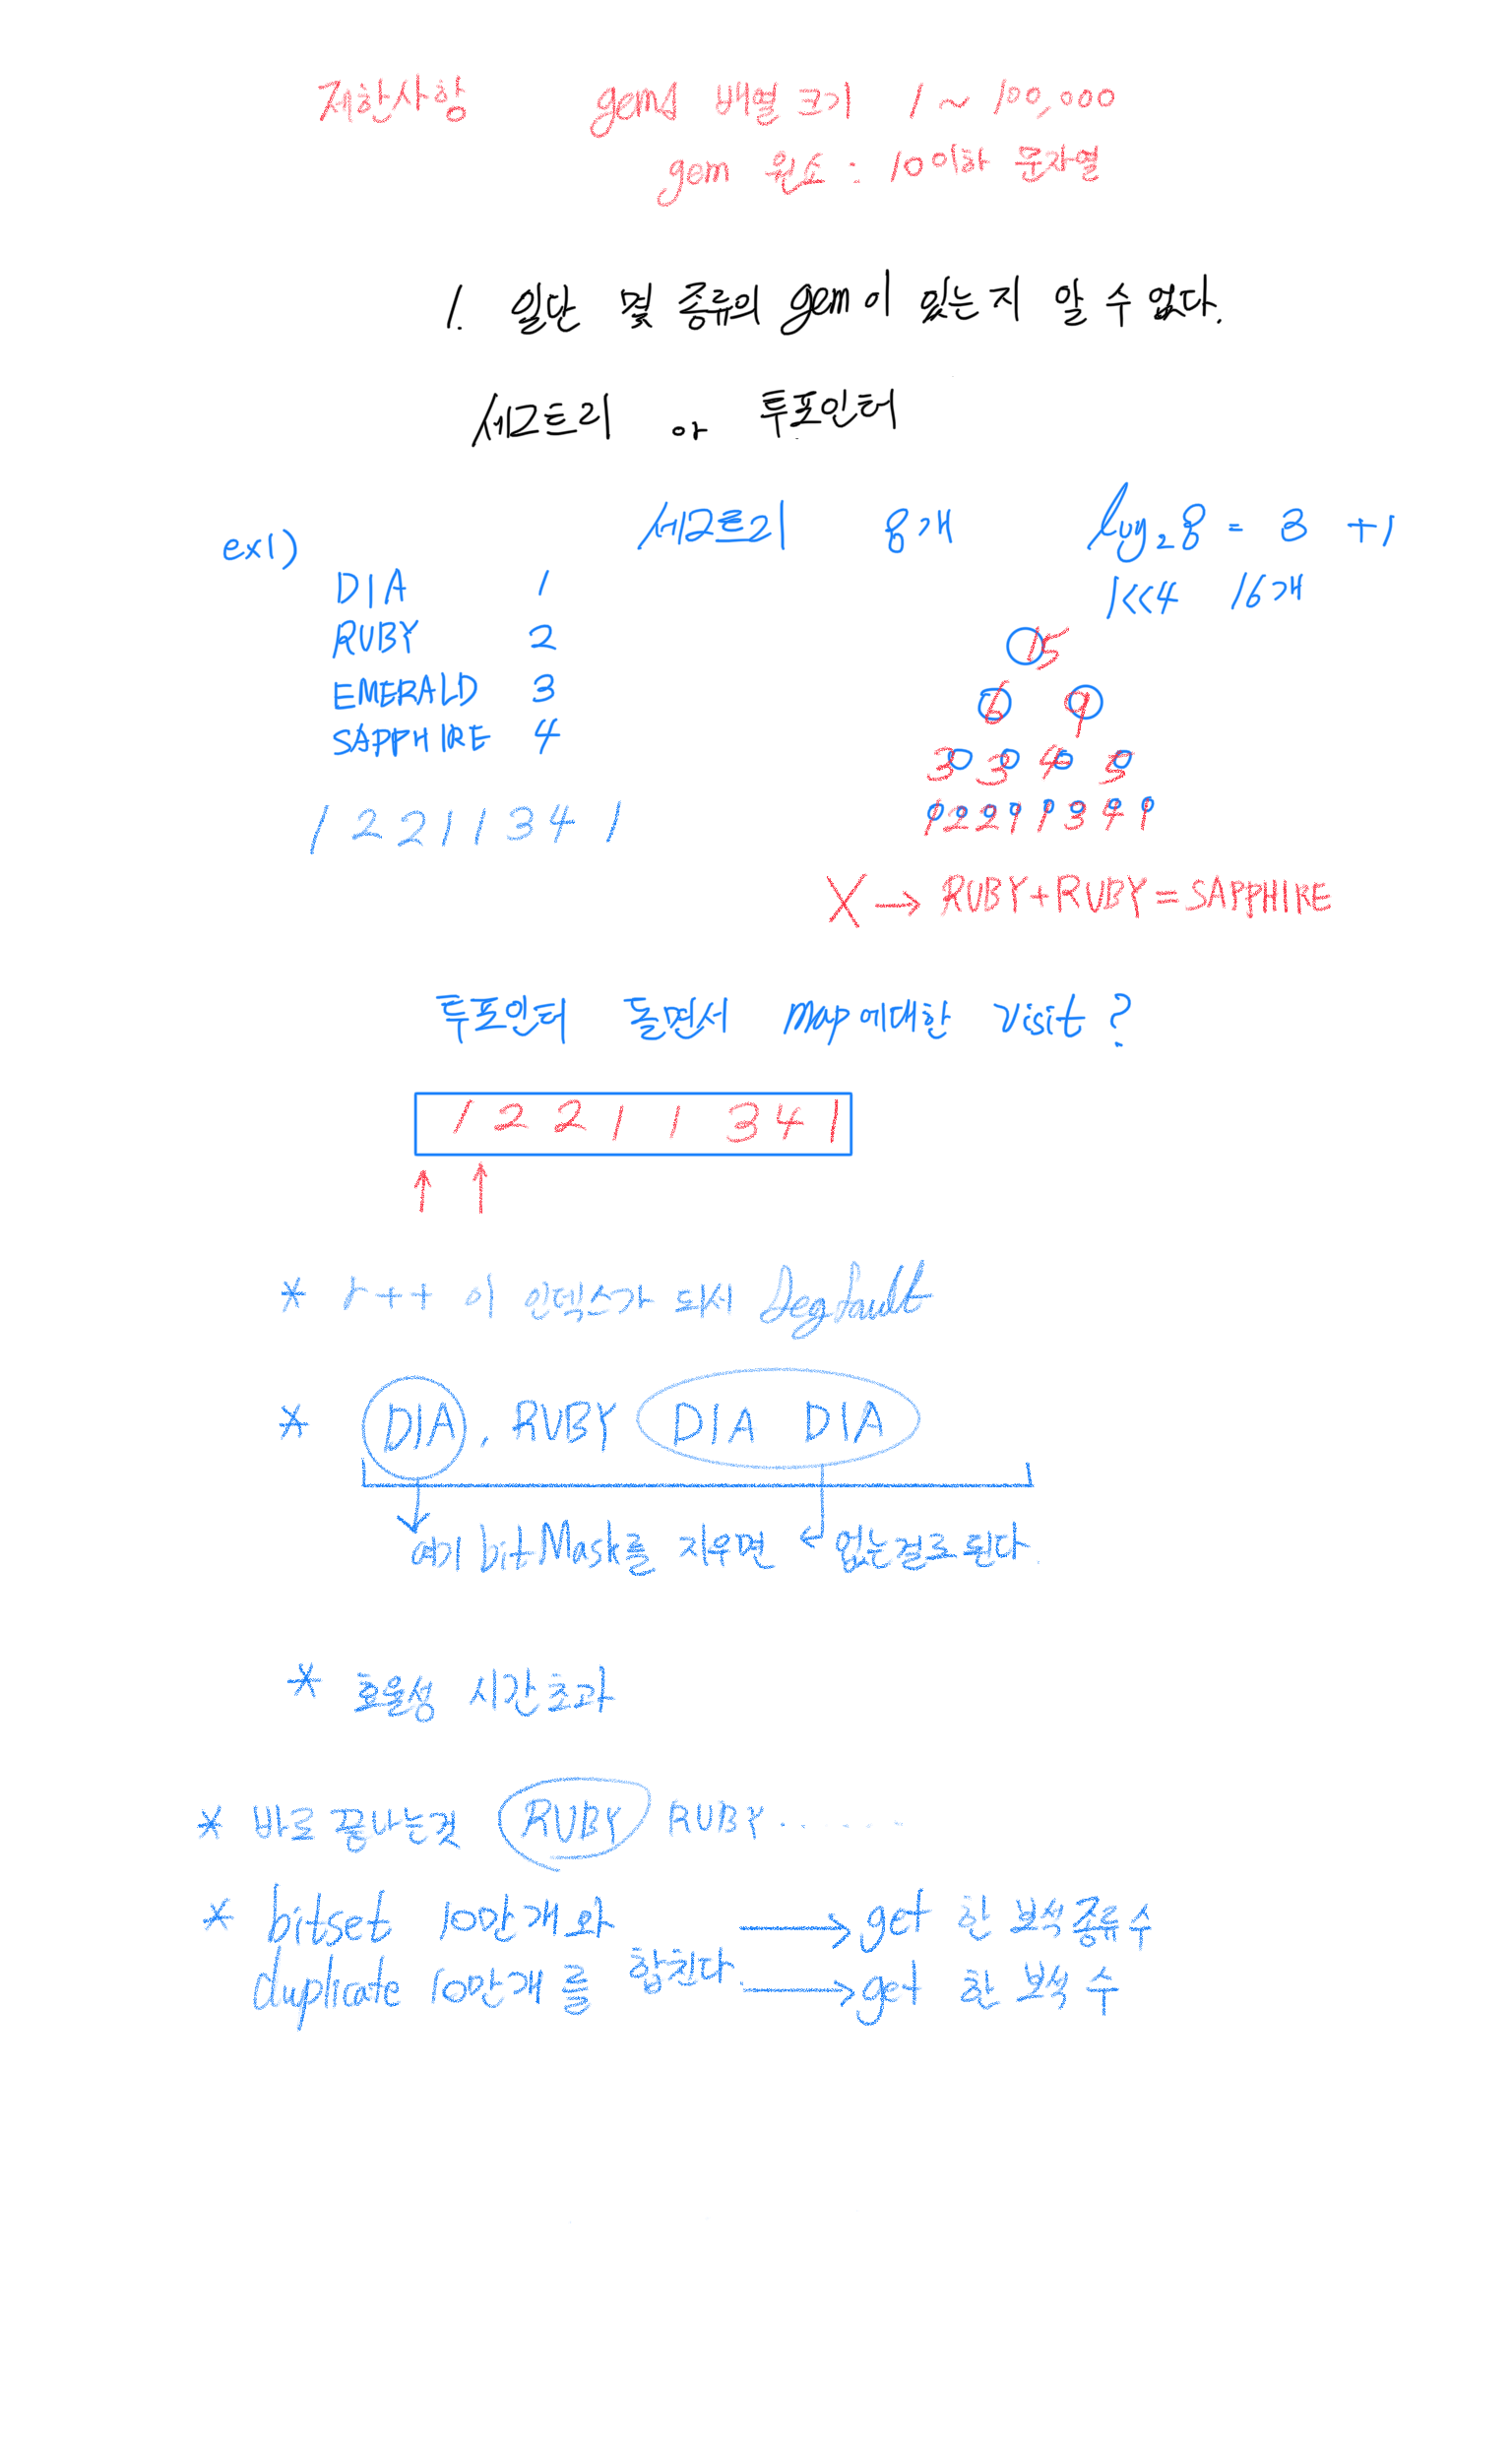 제한사항 gems 배열 크기 1 ~ 100,000
gem 원소 : 10이하 문자열
1. 일단 몇 종류의 gem이 있는지 알 수 없다.
세그트리 or 투포인터
세그트리 8개 log₂8 = 3 +1
ex1)
1<<4 16개
DIA 1
RUBY 2
EMERALD 3
SAPPHIRE 4
15
6 9
3 3 4 5
1 2 2 1 1 3 4 1
1 2 2 1 1 3 4 1
X → RUBY+RUBY=SAPPHIRE
투포인터 돌면서 map에대한 visit ?
1 2 2 1 1 3 4 1
* r++ 이 인덱스가 되서 Segfault
* DIA, RUBY DIA DIA
여기 bitMask를 지우면 없는걸로 된다.
* 효율성 시간초과
* 바로 끝나는것 RUBY RUBY ......
* bitset 10만개와 → get 한 보석종류 수
duplicate 10만개 를 합친다. → get 한 보석 수